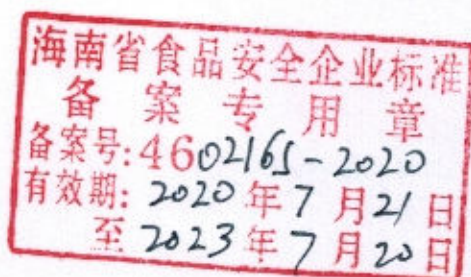 海南省食品安全企业标准
备案专用章
备案号:4602165-2020
有效期:2020年7月21日
至2023年7月20日